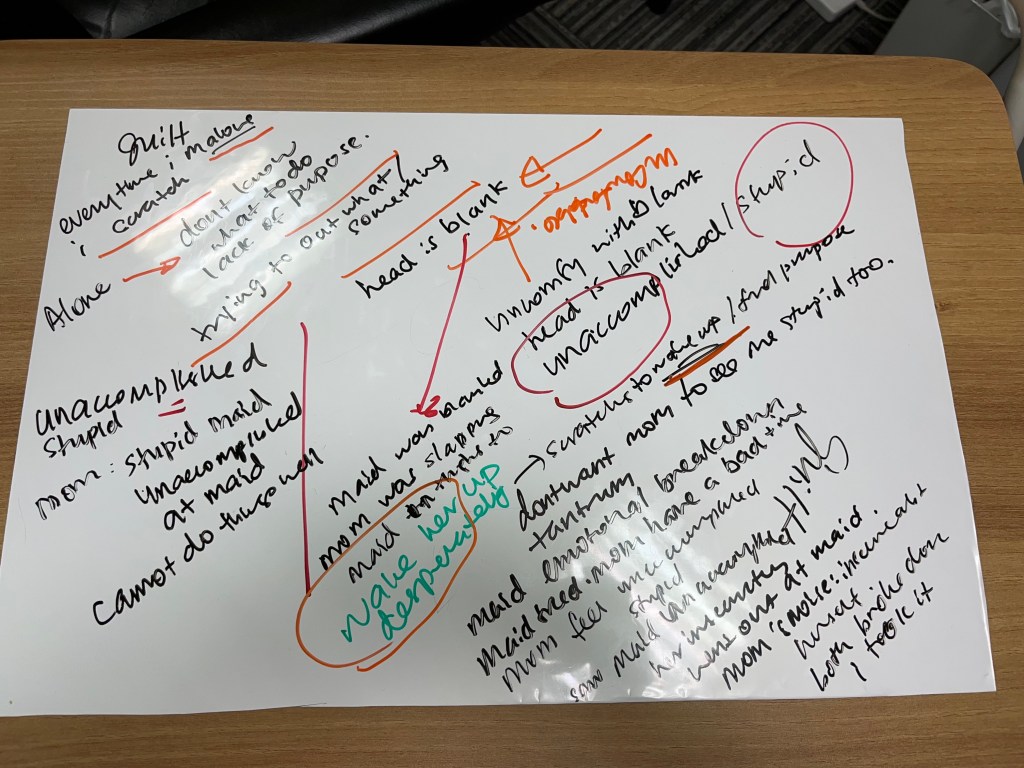 guilt
everytime i'm alone
i scratch
Alone → dont know
what to do
lack of purpose.
trying to
out what /
something
head is blank
Unaccomplished
stupid
mom: stupid maid
unaccomplished
at maid
cannot do things well
maid was blanked
mom was slapping
maid to
wake her up
desperately
uncomfy with blank
head is blank
unaccomplished / stupid
→ scratches to wake up / find purpose
dont want mom to see me stupid too.
tantrum
maid emotional breakdown
maid tired. mom have a bad time
mom feel unaccomplished
stupid
saw maid unaccomplished
her insecurity
went out at maid.
mom is
herself
both broke down
I took it